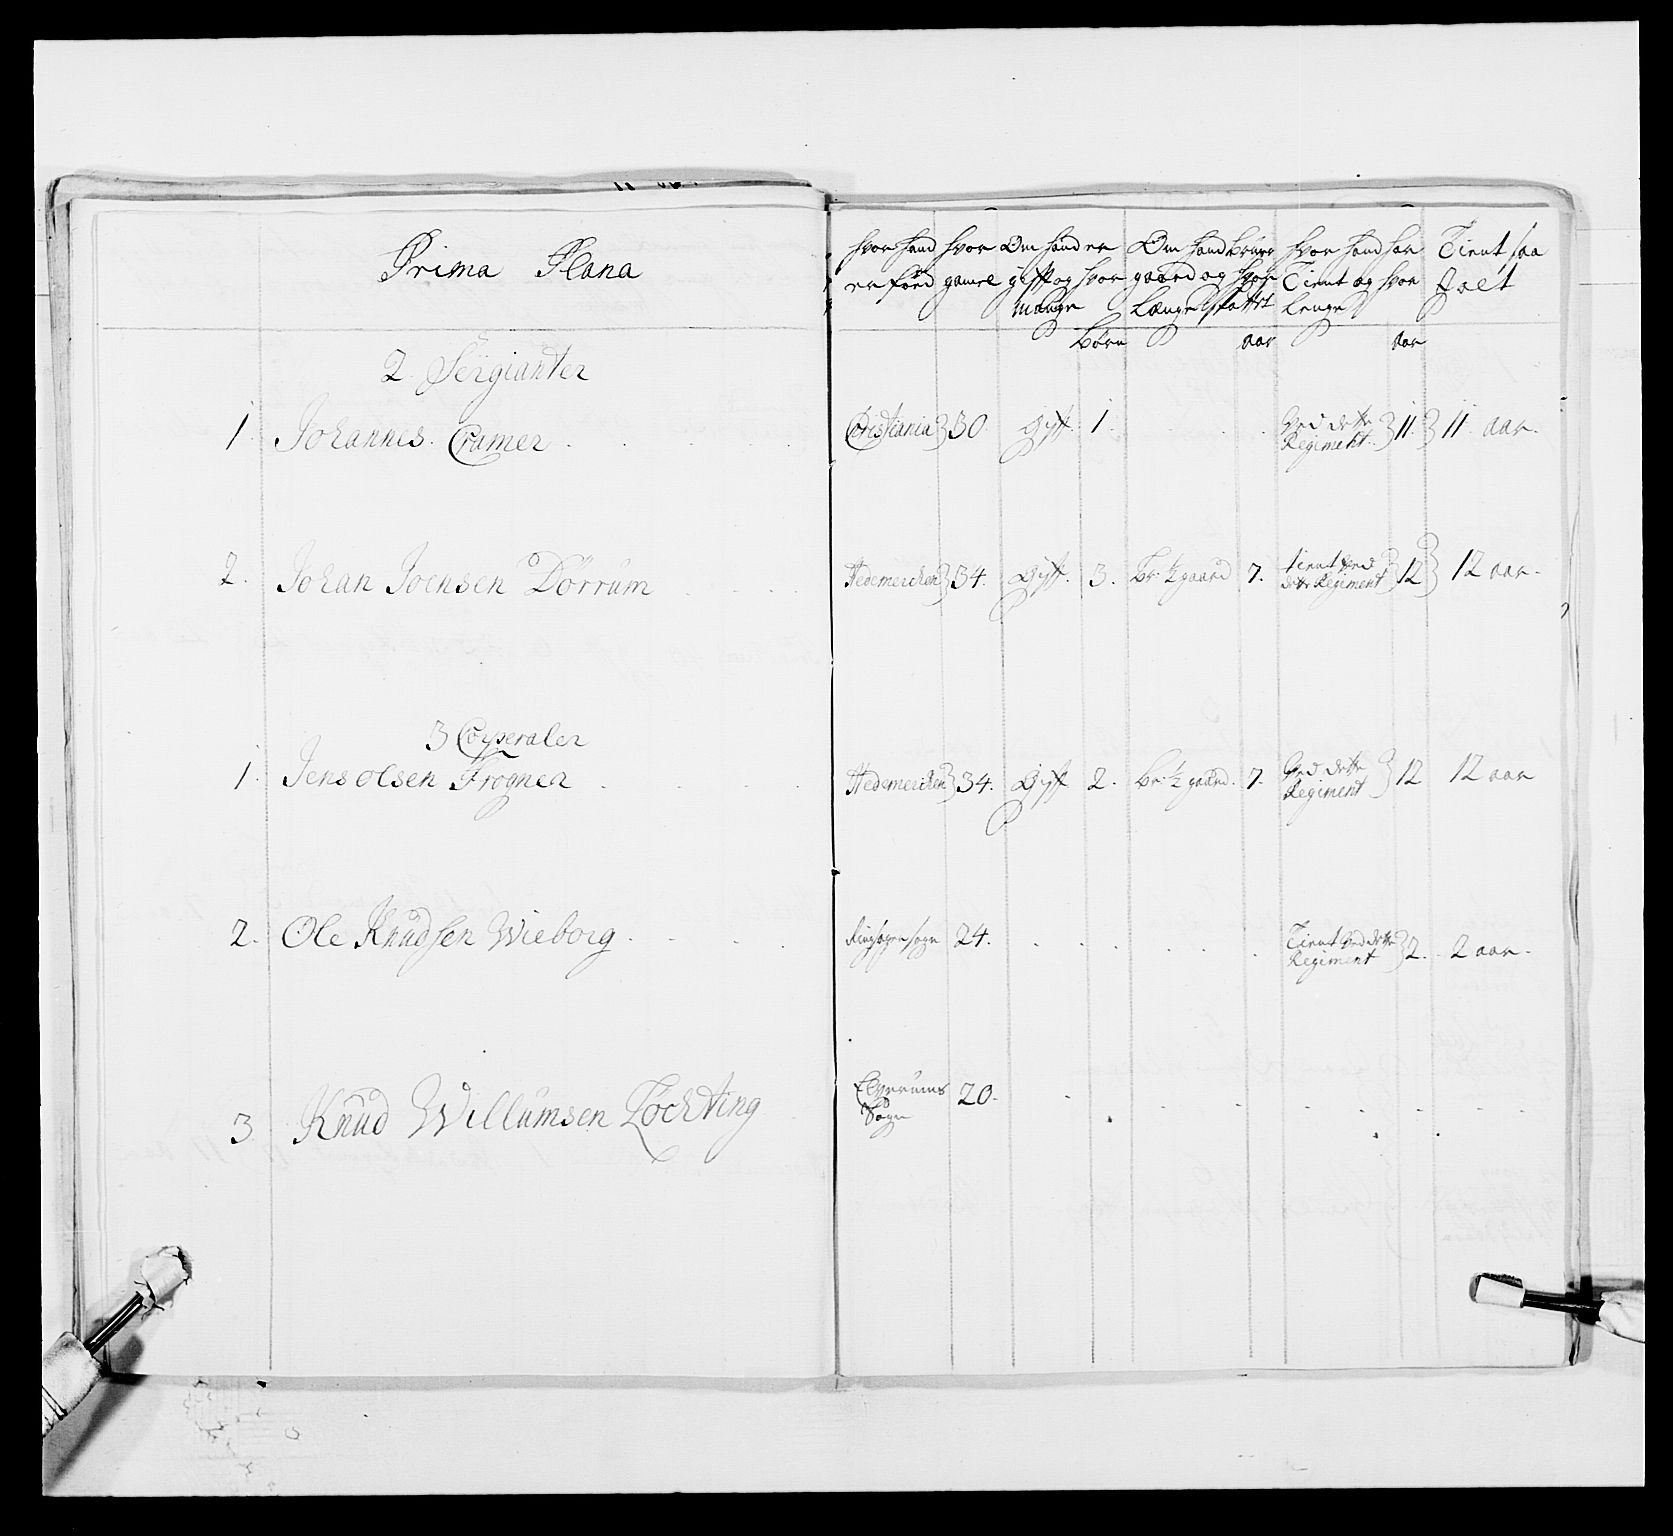 Prima Plana
hvor hand er föed
hvor gamel
Om hand er gifft og hvor mange
Börn
Om hand bruger gaard og hvor Længe
aar
hvor hand har Tient og hvor lenge
aar
Tient saa
2. Sergianter
1. Johannes Cramer Cristiania 30. Gift. 1. Ved dette Regiment 11. 11. aar.
2. Johan Joensen Dörrüm Hedemercken 34. Gift. 3. Br: ½ gaard 7. tient ved dette Regiment 12 12 aar.
3 Corperaler
1. Jens olsen Frogner Hedemercken 34. Gift 2. Br: ½ gaard. 7. Ved dette Regiment 12 12 aar
2. Ole Knudsen Wieborg. Ringsagersogn 24. Tient ved dette Regiment 2. 2 aar.
3 Knud Willumsen Löchting Elverums Sogn 20.